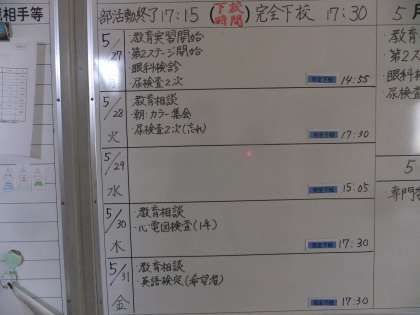 相手等
部活動終了 17:15 (下校時間) 完全下校 17:30
5/27
教育実習開始
・第2ステージ開始
・眼科検診
・尿検査2次
完全下校 14:55
5/28 火
教育相談
・朝:カラー集会
・尿検査2次(忘れ)
完全下校 17:30
5/29 水
完全下校 15:05
5/30 木
教育相談
・心電図検査(1年)
完全下校 17:30
5/31 金
教育相談
・英語検定(希望者)
完全下校 17:30
5月
教育
第2ス
眼科検
尿検査
5
専門